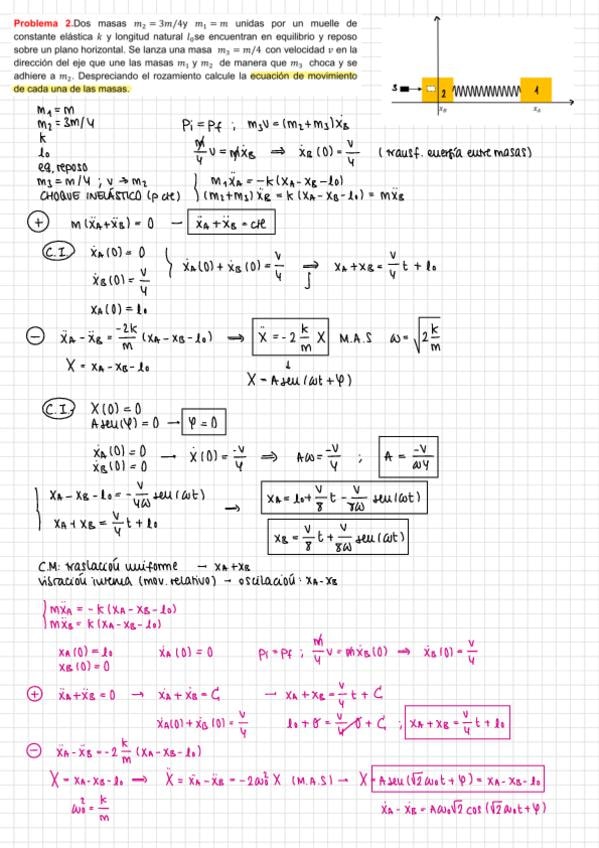 Problema 2.Dos masas m₂ = 3m/4y m₁ = m unidas por un muelle de
constante elástica k y longitud natural l₀se encuentran en equilibrio y reposo
sobre un plano horizontal. Se lanza una masa m₃ = m/4 con velocidad v en la
dirección del eje que une las masas m₁ y m₂ de manera que m₃ choca y se
adhiere a m₂. Despreciando el rozamiento calcule la ecuación de movimiento
de cada una de las masas.
3 2 1
x_B x_A
m₁ = m
m₂ = 3m/4
k
l₀
eq, reposo
m₃ = m/4 ; v → m₂
CHOQUE INELÁSTICO (p cte)
Pi = Pf ; m₃v = (m₂+m₃)ẋ_B
m/4 v = mẋ_B ⇒ ẋ_B(0) = v/4 (transf. energía entre masas)
{ m₁ẍ_A = -k(x_A - x_B - l₀)
(m₂+m₃)ẍ_B = k(x_A - x_B - l₀) = mẍ_B
(+) m(ẍ_A+ẍ_B) = 0 — ẋ_A + ẋ_B = cte
C.I. ẋ_A(0) = 0
ẋ_B(0) = v/4
x_A(0) = l₀
} ẋ_A(0) + ẋ_B(0) = v/4 ⇒ ∫ x_A + x_B = v/4 t + l₀
(−) ẍ_A - ẍ_B = -2k/m (x_A - x_B - l₀) ⇒ Ẍ = -2 k/m X M.A.S ω = √(2 k/m)
X = x_A - x_B - l₀ ↓
X = A seu(ωt + φ)
C.I. X(0) = 0
A seu(φ) = 0 → φ = 0
ẋ_A(0) = 0
ẋ_B(0) = 0
→ Ẋ(0) = -v/4 ⇒ Aω = -v/4 ; A = -v/ω4
{ x_A - x_B - l₀ = - v/4ω seu(ωt)
x_A + x_B = v/4 t + l₀
→ x_A = l₀ + v/8 t - v/8ω seu(ωt)
x_B = v/8 t + v/8ω seu(ωt)
C.M: traslación uniforme → x_A + x_B
vibración interna (mov. relativo) → oscilación: x_A - x_B
{ mẍ_A = -k(x_A - x_B - l₀)
mẍ_B = k(x_A - x_B - l₀)
x_A(0) = l₀
x_B(0) = 0
ẋ_A(0) = 0 Pi = Pf ; m/4 v = mẋ_B(0) ⇒ ẋ_B(0) = v/4
(+) ẍ_A + ẍ_B = 0 → ẋ_A + ẋ_B = C₁ → x_A + x_B = v/4 t + C
ẋ_A(0) + ẋ_B(0) = v/4 l₀ + 0 = v/4 0 + C ; x_A + x_B = v/4 t + l₀
(−) ẍ_A - ẍ_B = -2 k/m (x_A - x_B - l₀)
X = x_A - x_B - l₀ ⇒ Ẍ = ẍ_A - ẍ_B = -2ω₀² X (M.A.S) → X = A seu(√2 ω₀t + φ) = x_A - x_B - l₀
ω₀² = k/m ẋ_A - ẋ_B = Aω₀√2 cos(√2 ω₀t + φ)